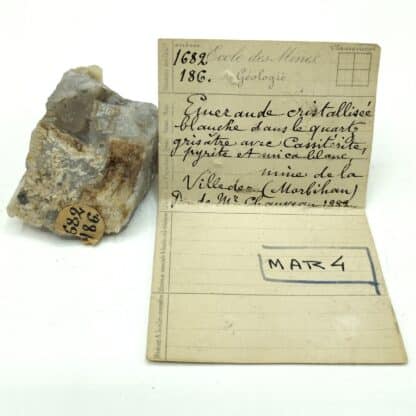 1682
186.
Ecole des Mines
Géologie
Classement
Emeraude cristallisée
blanche dans le quartz
grisâtre avec Cassitérite,
pyrite et mica blanc,
mine de la
Villeder (Morbihan)
de Mr Chauveau
MAR 4
1682
186.